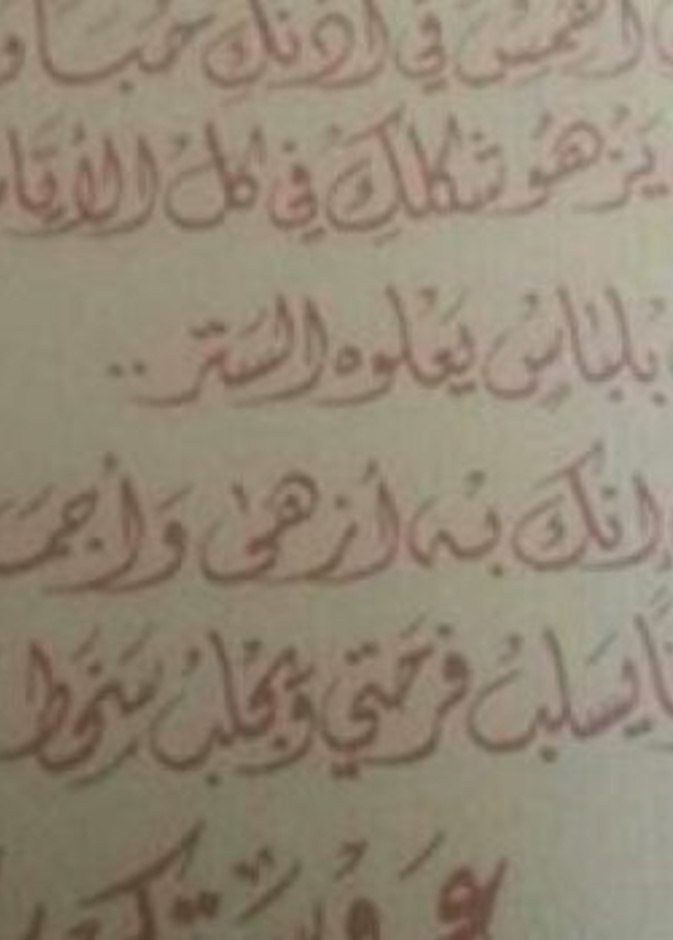 أهمس في أذنك حبا و
يزهو شكلك في كل الأيا
بلباس يعلوه الستر ..
انك به أزهى وأجمـ
يسلب فرحتي ويجلب سخط